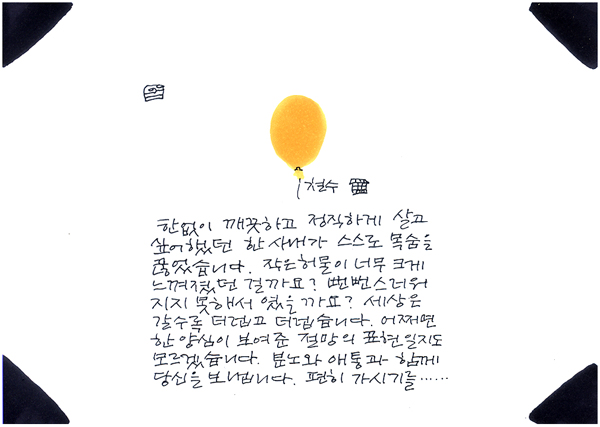 철수
한없이 깨끗하고 정직하게 살고
싶어했던 한 사내가 스스로 목숨을
끊었습니다. 작은허물이 너무 크게
느껴졌던 걸까요? 뻔뻔스러워
지지 못해서 였을까요? 세상은
갈수록 더럽고 더럽습니다. 어쩌면
한 양심이 보여준 절망의 표현일지도
모르겠습니다. 분노와 애통과 함께
당신을 보냅니다. 편히 가시기를......